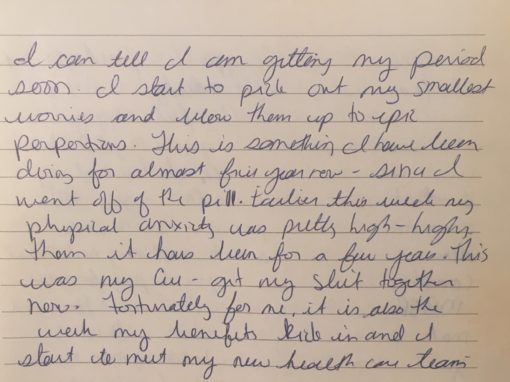 I can tell I am getting my period
soon. I start to pick out my smallest
worries and blow them up to epic
porportions. This is something I have been
doing for almost five years now - since I
went off of the pill. Earlier this week my
physical anxiety was pretty high - higher
then it has been for a few years. This
was my cue - get my shit together
now. Fortunately for me, it is also the
week my benefits kick in and I
start to meet my new health care team